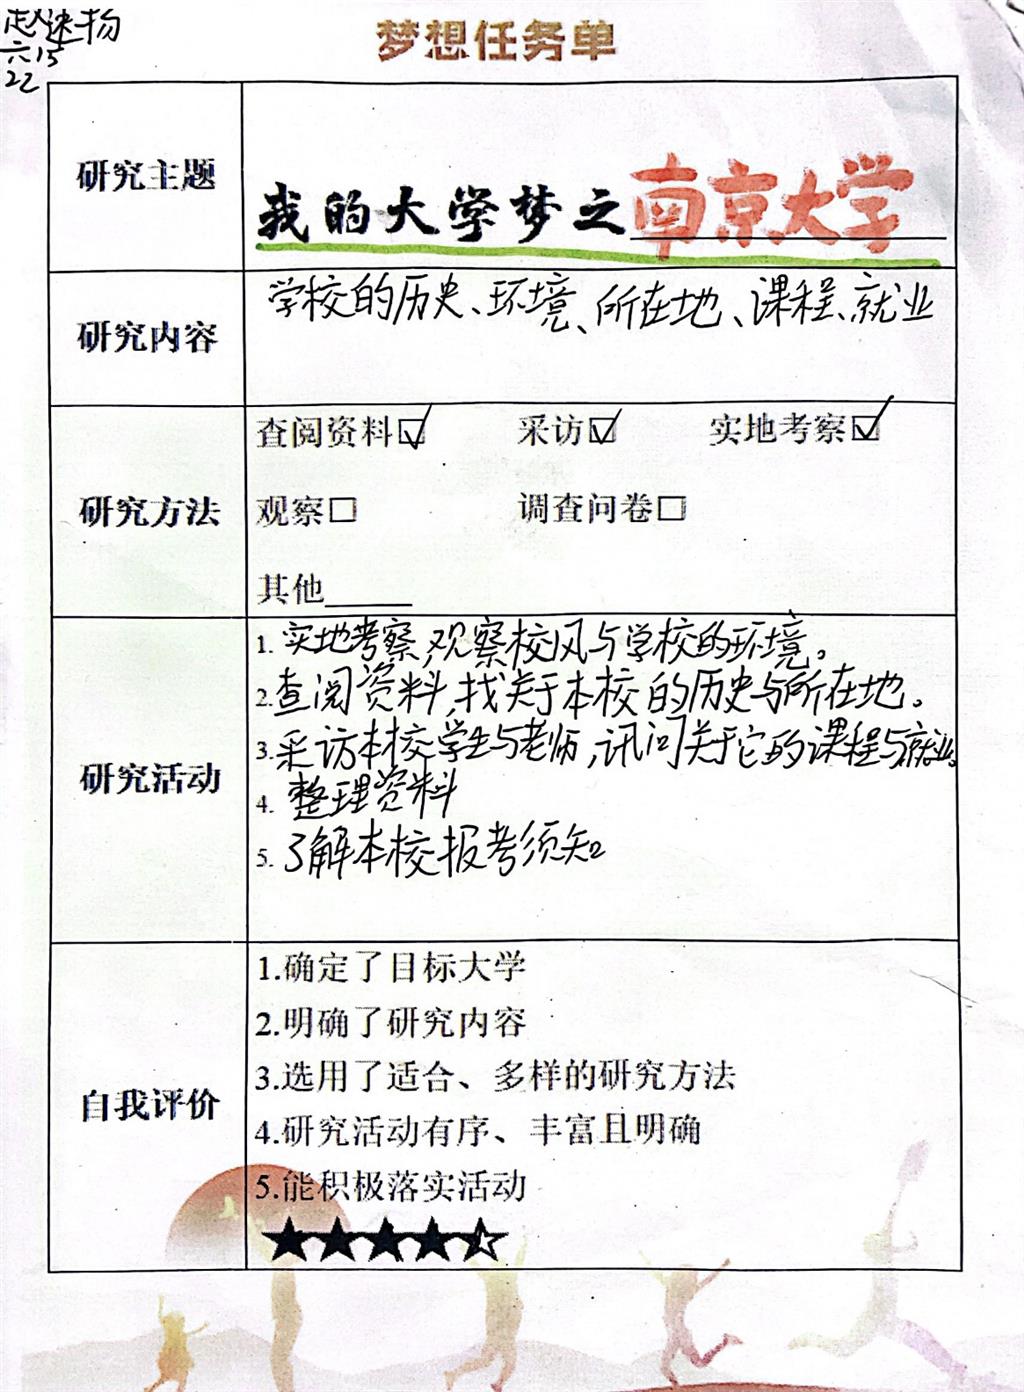 六15
22
梦想任务单
研究主题
我的大学梦之南京大学
研究内容
学校的历史、环境、所在地、课程、就业
研究方法
查阅资料☑ 采访☑ 实地考察☑
观察□ 调查问卷□
其他____
研究活动
1. 实地考察,观察校风与学校的环境。
2. 查阅资料,找关于本校的历史与所在地。
3. 采访本校学生与老师,讯问关于它的课程与就业。
4. 整理资料
5. 了解本校报考须知
自我评价
1.确定了目标大学
2.明确了研究内容
3.选用了适合、多样的研究方法
4.研究活动有序、丰富且明确
5.能积极落实活动
★★★★☆